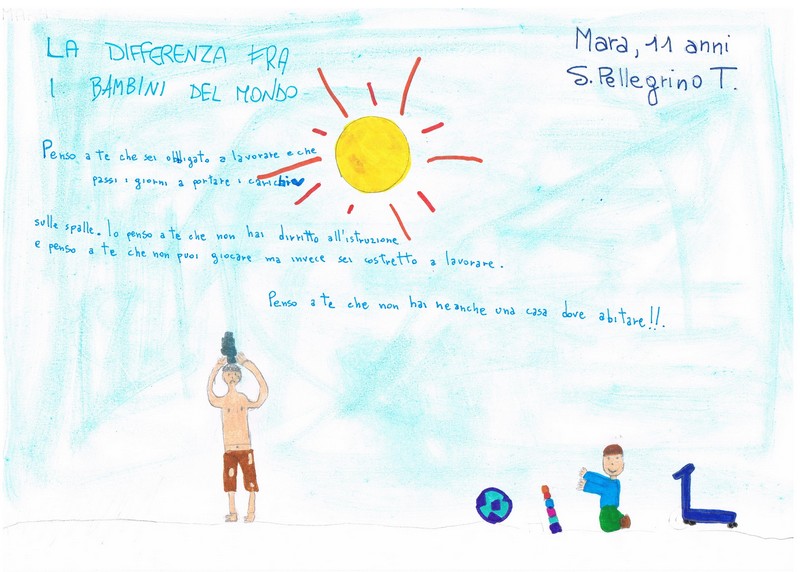 LA DIFFERENZA FRA
I BAMBINI DEL MONDO
Mara, 11 anni
S. Pellegrino T.
Penso a te che sei obbligato a lavorare e che
passi i giorni a portare i carichi
sulle spalle. Io penso a te che non hai dirritto all'istruzione
e penso a te che non puoi giocare ma invece sei costretto a lavorare.
Penso a te che non hai neanche una casa dove abitare!!.